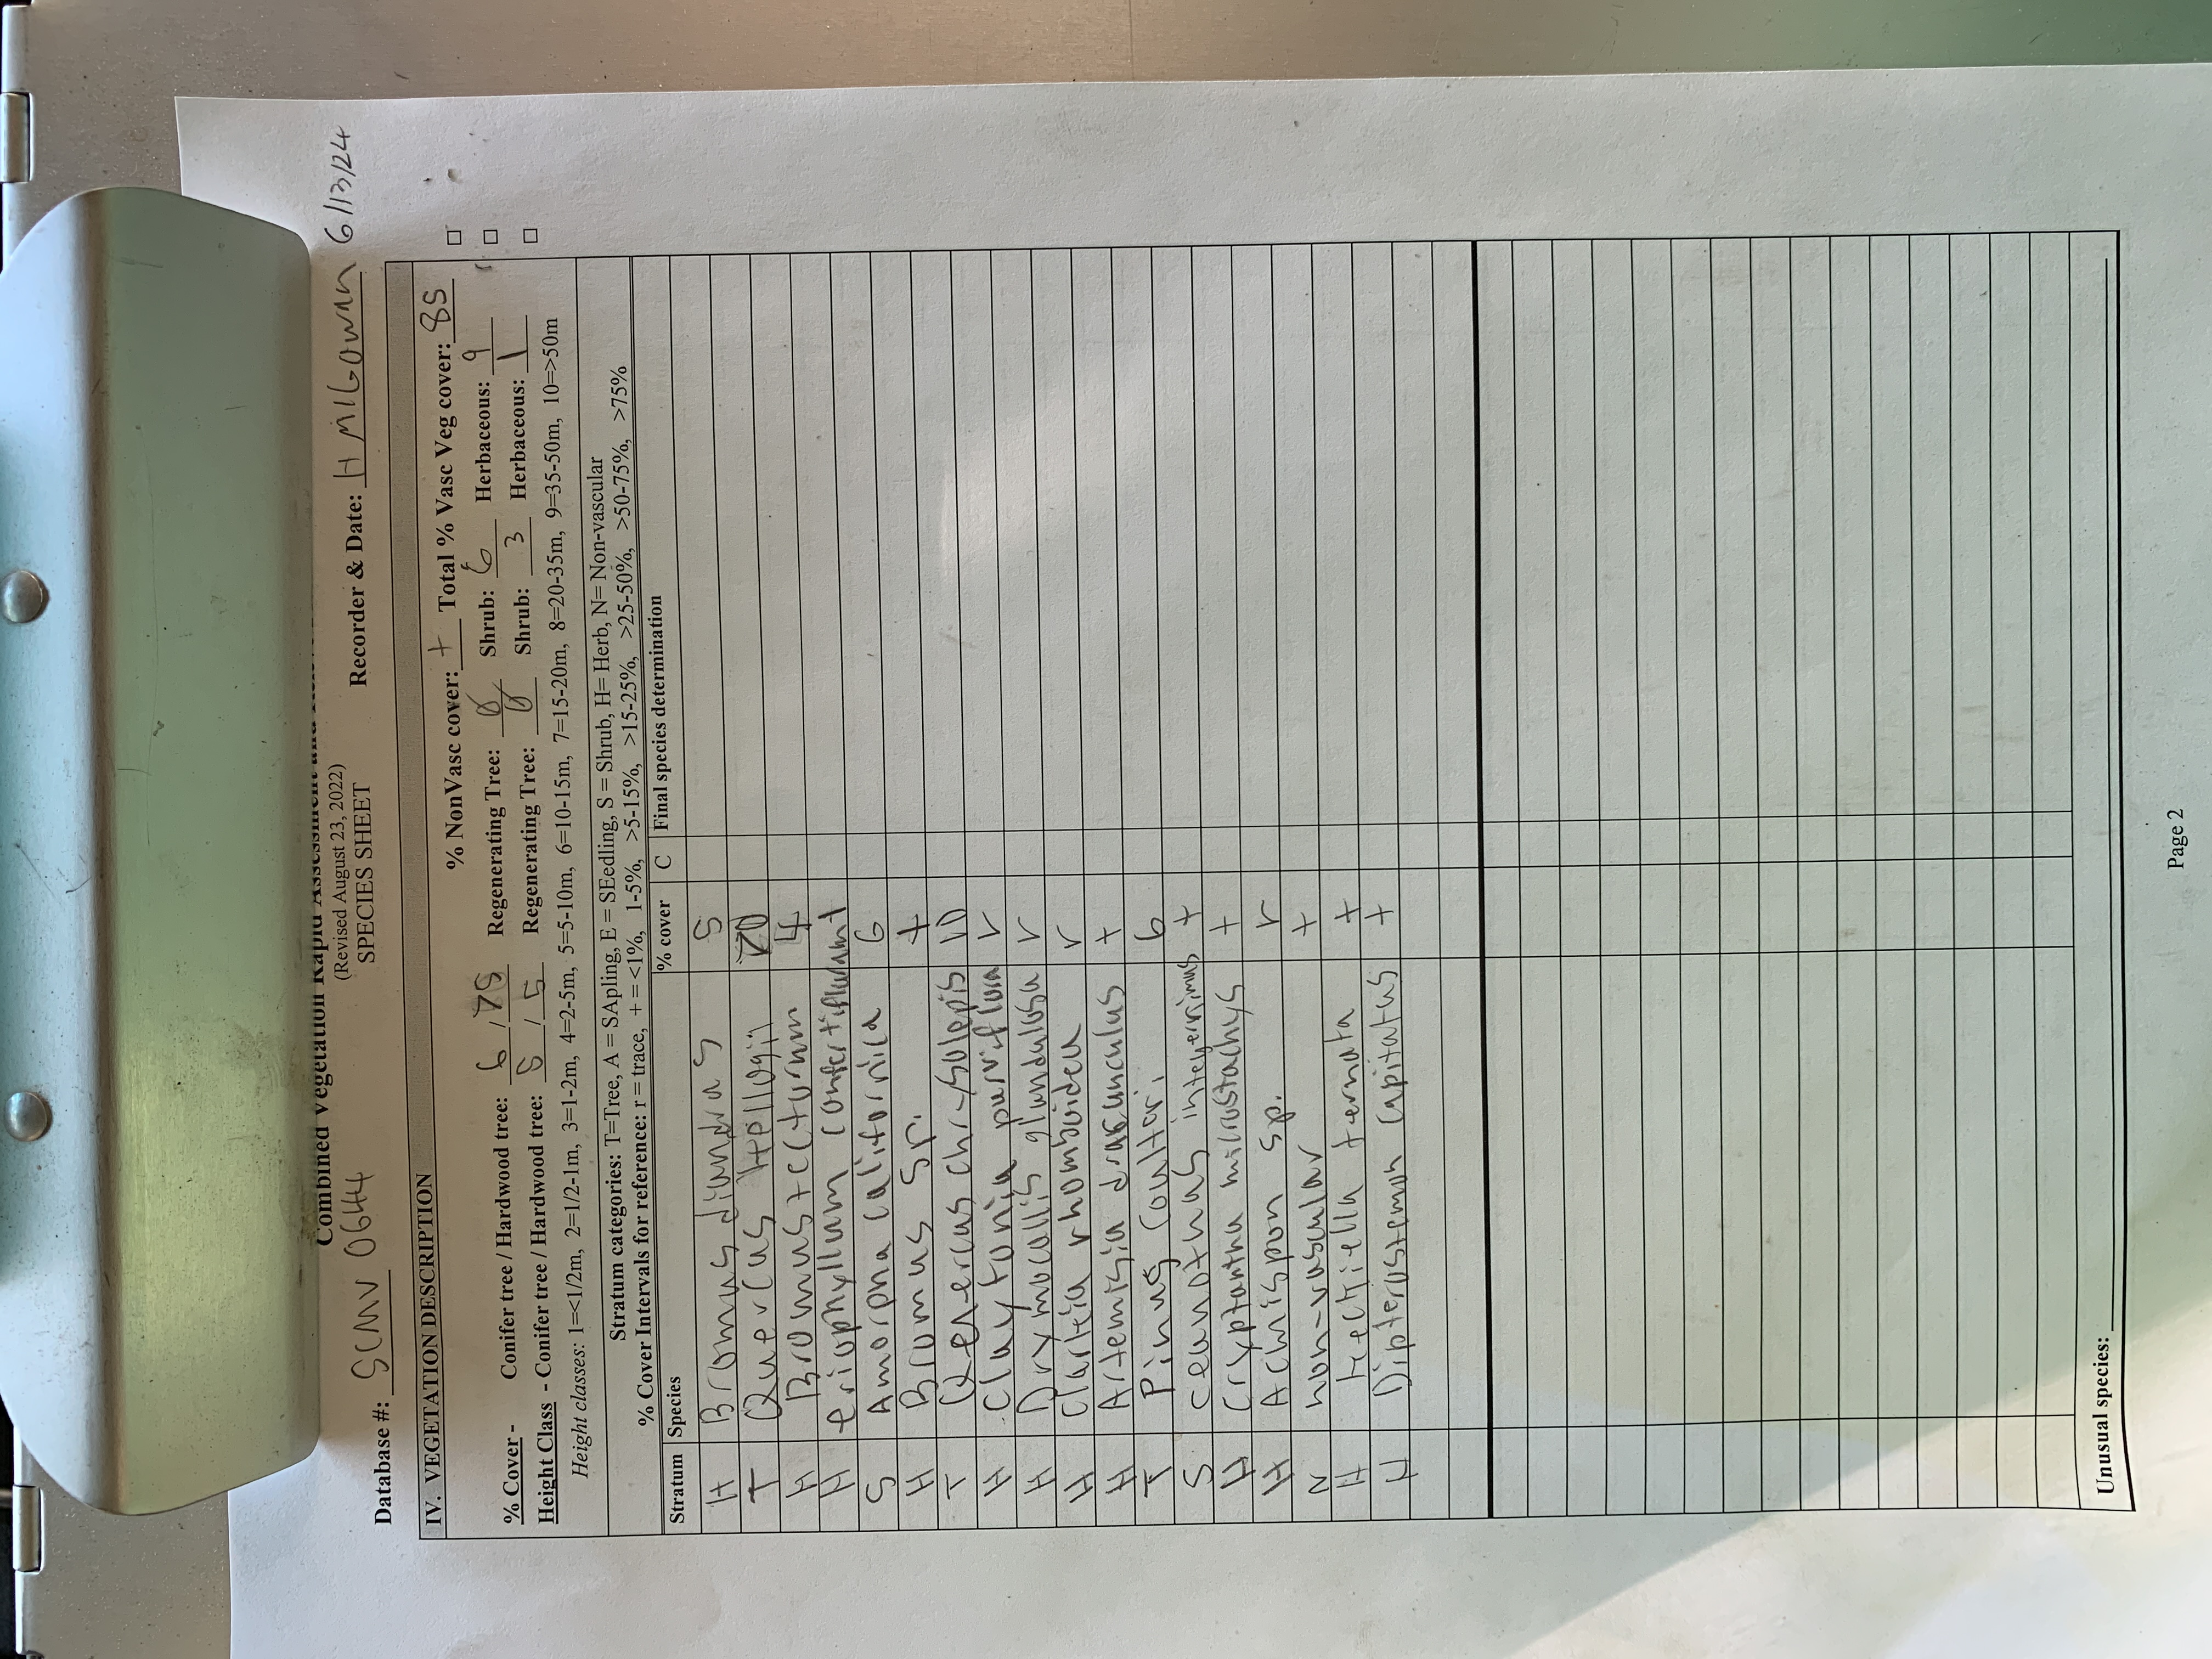 Combined Vegetation Rapid Assessment and
(Revised August 23, 2022)
SPECIES SHEET
Database #: SCNV 0644 Recorder & Date: H MIGOWAN 6/13/24
IV. VEGETATION DESCRIPTION
% NonVasc cover: + Total % Vasc Veg cover: 85
% Cover - Conifer tree / Hardwood tree: 6 / 75 Regenerating Tree: 0 Shrub: 6 Herbaceous: 9
Height Class - Conifer tree / Hardwood tree: 5 / 5 Regenerating Tree: 0 Shrub: 3 Herbaceous: 1
Height classes: 1=<1/2m, 2=1/2-1m, 3=1-2m, 4=2-5m, 5=5-10m, 6=10-15m, 7=15-20m, 8=20-35m, 9=35-50m, 10=>50m
Stratum categories: T=Tree, A = SApling, E = SEedling, S = Shrub, H= Herb, N= Non-vascular
% Cover Intervals for reference: r = trace, + = <1%, 1-5%, >5-15%, >15-25%, >25-50%, >50-75%, >75%
Stratum Species % cover C Final species determination
H Bromus diandrus 5
T Quercus kelloggii 70
H Bromus tectorum 4
H eriophyllum confertiflorum 1
S Amorpha californica 6
H Bromus sp. +
T Quercus chrysolepis 10
H Claytonia parviflora r
H Drymocallis glandulosa r
H Clarkia rhomboidea r
H Artemisia dracunculus +
T Pinus coulteri 6
S ceanothus integerrimus +
H Cryptantha microstachys +
H Acmispon sp. r
N non-vascular +
H keckiella ternata +
H Dipterostemon capitatus +
Unusual species:
Page 2